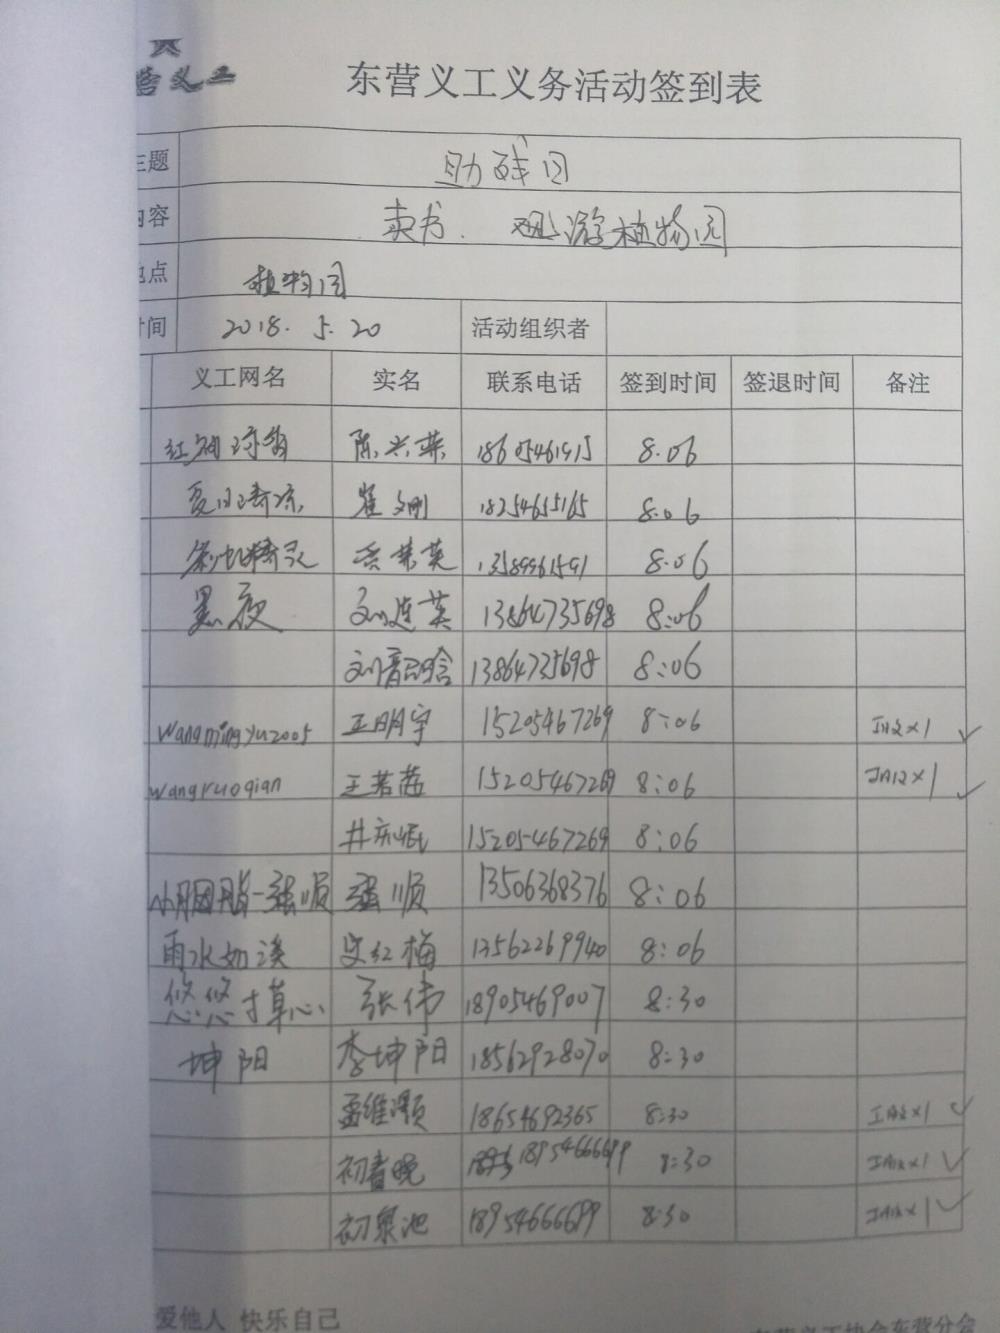 营义工
东营义工义务活动签到表
主题 助残日
内容 卖书. 观游植物园
地点 植物园
时间 2018. 5. 20 活动组织者
义工网名 实名 联系电话 签到时间 签退时间 备注
陈兴荣 18605461915 8.06
夏日清凉 崔文刚 18254655165 8.06
13589961591 8.06
黑夜 刘连英 13864735698 8:06
刘晗 13864735698 8:06
wangmingyu2005 王明宇 15205467269 8:06
wangruoqian 王若茜 15205467269 8:06
井庆 15205467269 8:06
小胭脂-强顺 强顺 13506368376 8:06
雨水如溪 史红梅 13562269940 8:06
悠悠寸草心 张伟 18905469007 8:30
坤阳 李坤阳 18562928070 8:30
孟维灏 18654692365 8:30
初春晚 18954666699 8:30
初泉池 18954666699 8:30
爱他人 快乐自己
东营义工协会东营分会